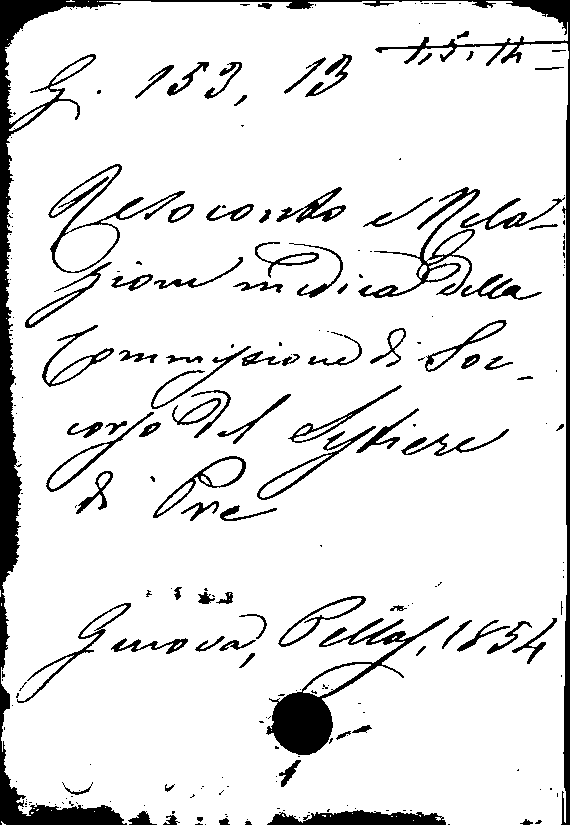 G. 153, 13 1.5.14
Resoconto e Rela-
zione medica della
Commissione di Soc-
corso del Sestiere
di Pre
Genova, Pellas, 1854